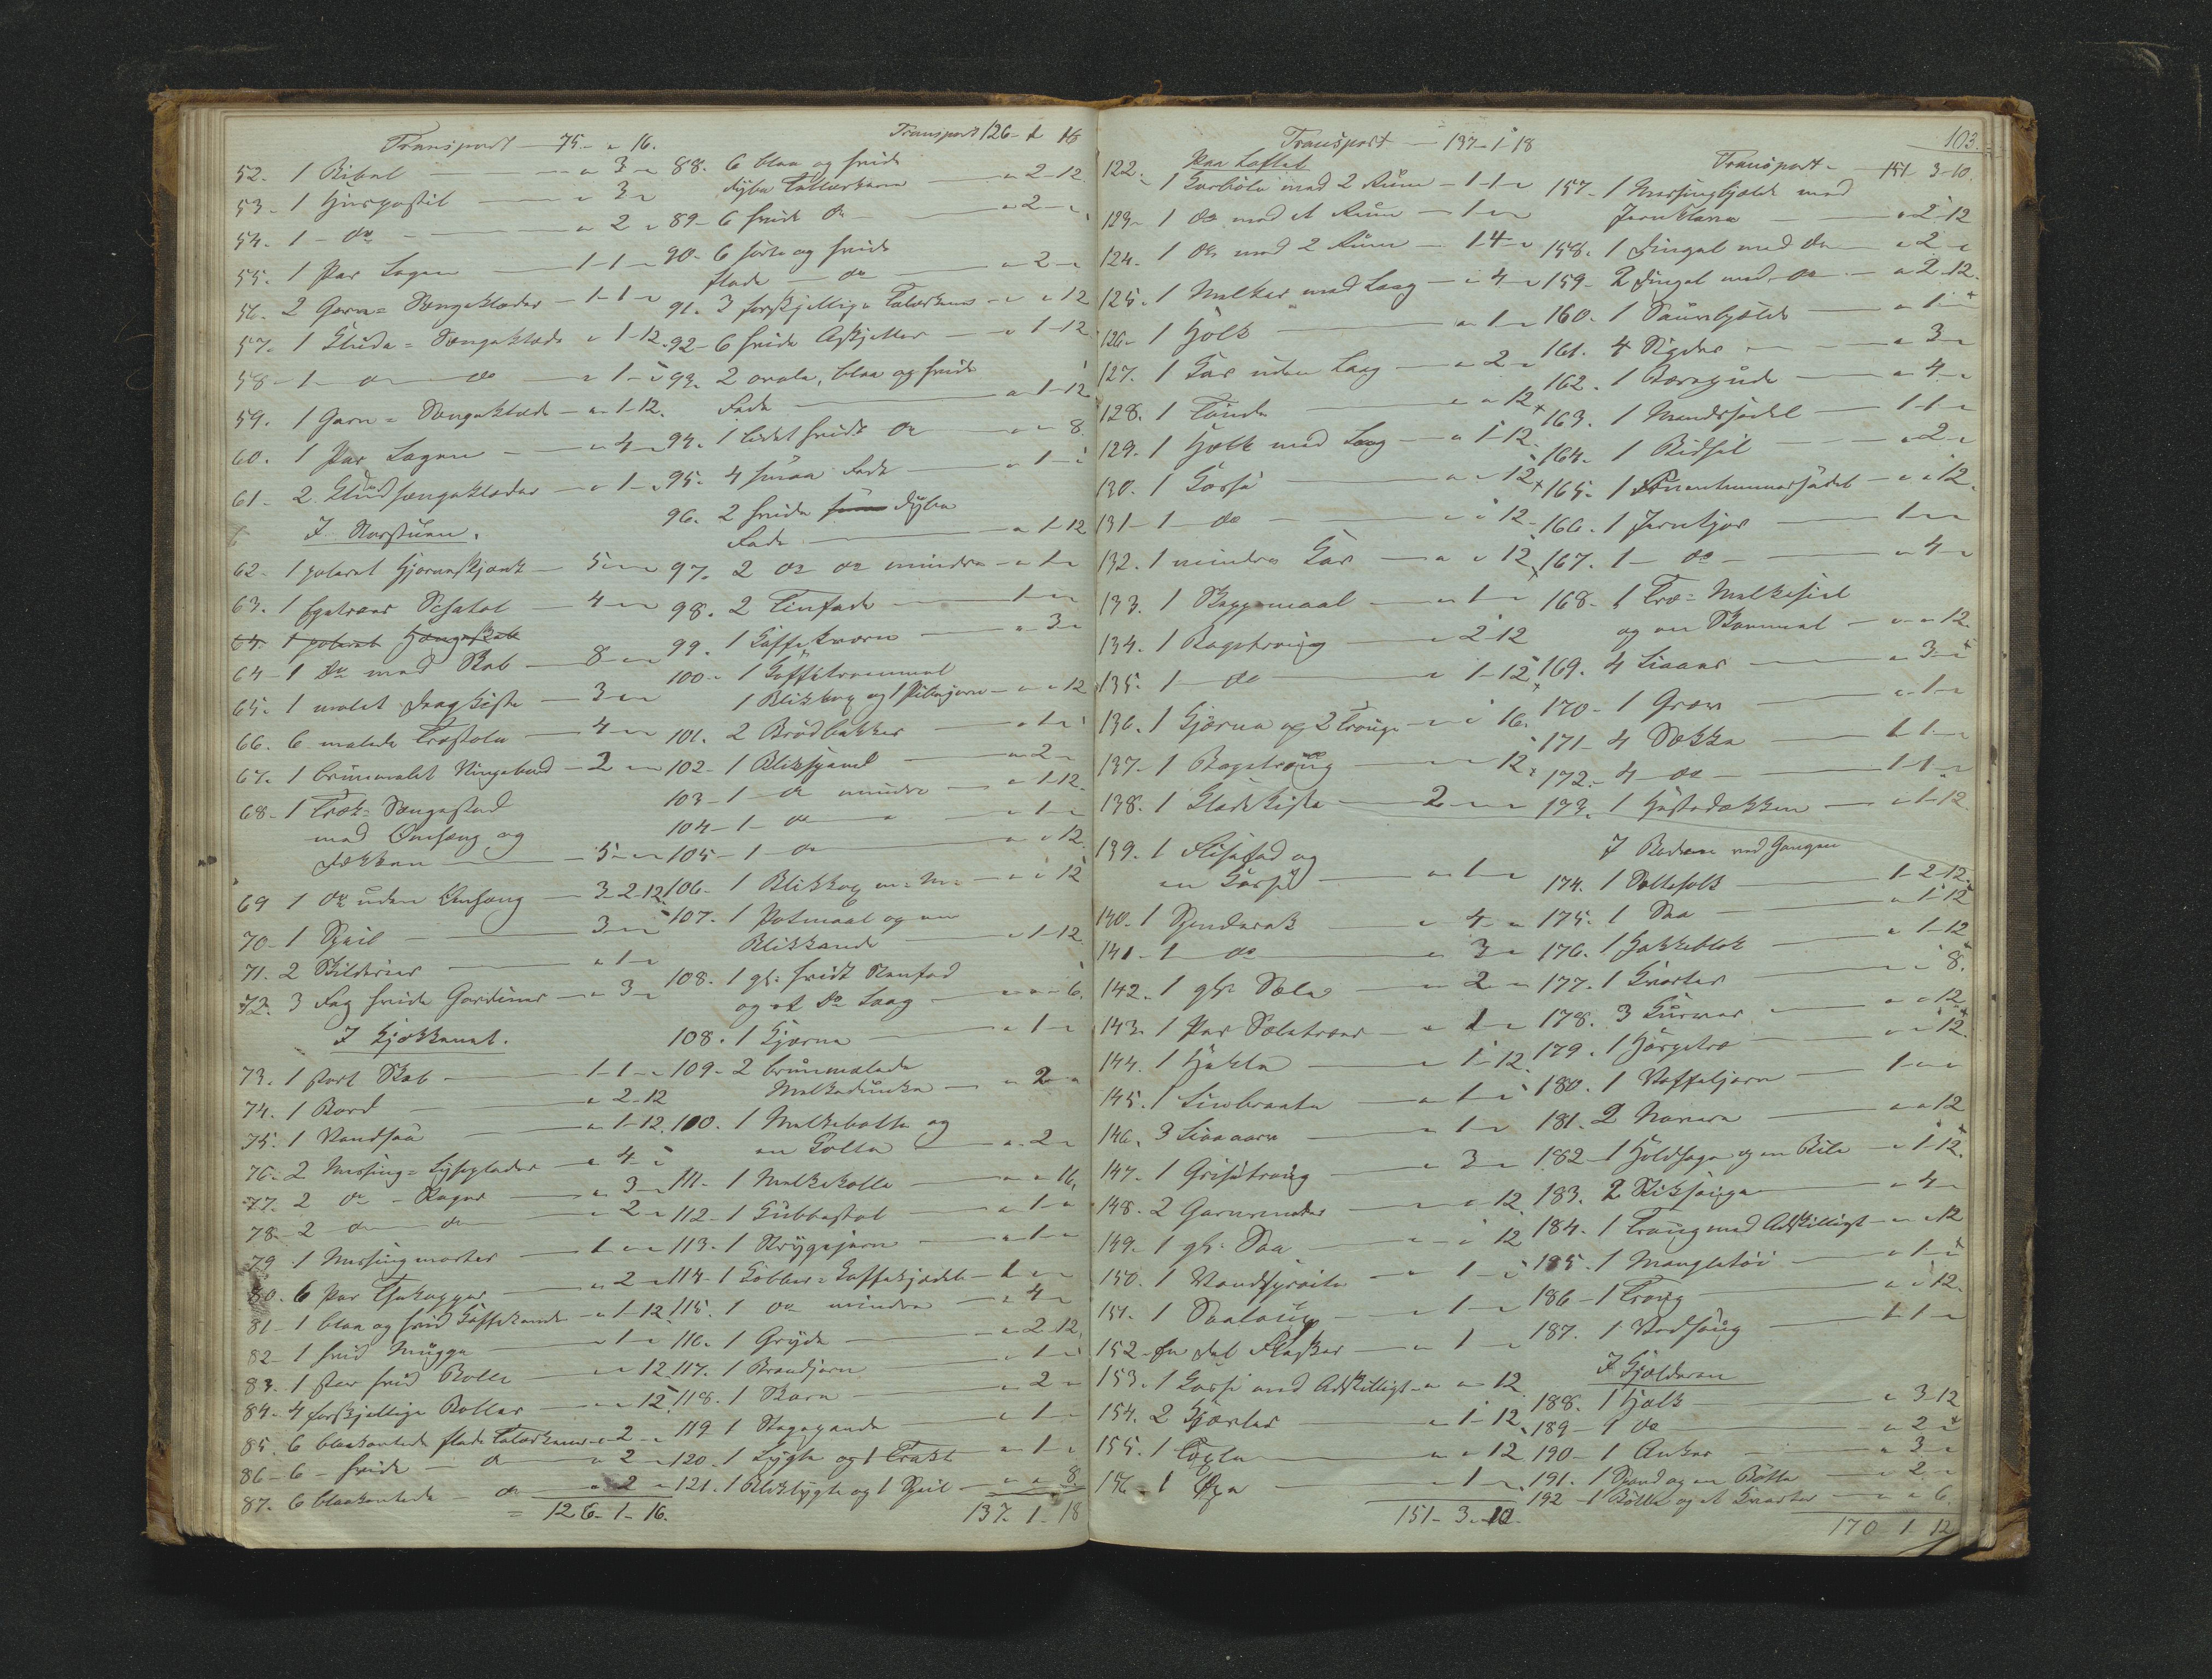 Transport — 75 - " 16.
52. 1 Bibel — " 3 "
53. 1 Huspostil — " 3 "
54. 1 - do — " 2 "
55. 1 Par Lagen — 1 - 1 "
56. 2 Garn= Sengeklæder — 1 - 1 "
57. 1 Klude= Sengeklæde " 1 - 12.
58 - 1 — do " 1 - "
59. 1 Garn= Sengeklæde — " 1 - 12.
60. 1 Par Lagen — " 4 "
61. 2 Sengeklæder — " 1 - "
I Storstuen.
62. 1 poleret Hjørneskjænk — 5 " "
63. 1 Egetræes Schatol — 4 " "
64. 1 poleret Hængeskab
64 - 1 do med Skab — 8 " "
65. 1 malet Dragkiste — 3 " "
66. 6 malede Træstole — 4 " "
67. 1 brunmalet Slingebord — 2 " "
68 - 1 Træk= Sengested
med Omhæng og
Dækken — 5 " "
69 1 do uden Omhæng — 3 - 2 - 12.
70 - 1 Speil — 3 " "
71. 2 Skilderier — " 1 "
72. 3 Fag hvide Gardiner — " 3 "
I Kjøkkenet.
73. 1 stort Skab — 1 - 1 - "
74. 1 Bord — " 2 - 12
75. 1 Vandsaa — " 1 - 12.
76. 2 Messing= Lyseplader — " 4 - "
77. 2 do - Stager — " 3 "
78 - 2 do — do — " 2 "
79. 1 Messingmorter — 1 " "
80. 6 Par Thekopper — " 2 "
81 - 1 blaa og hvid Kaffekande — " 1 - 12
82 - 1 hvid Mugge — " 1 "
83. 1 stor hvid Bolle — " " 12
84 - 4 forskjellige Boller — " " 12
85. 6 blaakantede flade Talærkener " 2 "
86 - 6 - hvide — do — " 2 "
87. 6 blaakantede — do — " 2 "
= 126 - 1 - 16.
Transport 126 - 1 16
88. 6 blaa og hvide
dybe Tallærkener — " 2 - 12
89 - 6 hvide do — " 2 - "
90. 6 sorte og hvide
flade — do — " 2 - "
91. 3 forskjellige Talærkener " " 12
92 - 6 hvide Asjetter — " 1 - 12
93. 2 ovale, blaa og hvide
Fade — " 1 - 12
94. 1 lidet hvidt do — " " 8
95. 4 smaa Fade — " 1 - "
96. 2 hvide dybe
Fade — " 1 - 12
97. 2 do do mindre — " 1 "
98. 2 Tinfade — 1 " "
99. 1 Kaffekværn — " 3 "
100. 1 Kaffetrommel
1 Blikkop og 1 Piberjern — " " 12
101. 2 Brødbakker — " 1 "
102 - 1 Blikspand — " 2 "
103 - 1 - do mindre — " 1 - 12.
104 - 1 - do — " 1 "
105 - 1 do — " " 12.
106. 1 Blikkop m: M: — " " 12
107. 1 Potmaal og en
Blikkande — " 1 - 12
108. 1 gl: hvidt Steenfad
og et do Laag — " " 6.
108. 1 Kjærne — " 1 "
109 - 2 brunmalede
Melkedunke — " 2 "
100. 1 Melkebøtte og
en Kolle — " 2 "
111. 1 Melkekolle — " " 16.
112 - 1 Kubbestol — " 1 "
113. 1 Strygejern — " 1 "
114 - 1 Kobber= Kaffekjedel — 1 " "
115. 1 do mindre — " 4 "
116. 1 Gryde — " 2 12.
117. 1 Brandjern — " 1 "
118. 1 Skarn — " 2 "
119 1 Stegepande — " 1 "
120. 1 Lygte og 1 Tragt — " 1 "
121. 1 Bliklygte og 1 Speil — " " 8.
137. 1. 18
Transport — 137 - 1 - 18
Paa Loftet
122. 1 Kornbøle med 2 Rum — 1 - 1 "
123 - 1 do med et Rum — 1 " "
124. 1 do med 2 Rum — 1 4 "
125. 1 Melkar med Laag — " 4 "
126 - 1 Holk — " 1 "
127. 1 Kar uden Laag — " 2 "
128. 1 Tønde — " " 12
129. 1 Holk med Laag — " 1 - 12.
130. 1 Kasse — " " 12
131 - 1 do — " " 12
132. 1 mindre Kar — " " 12
133. 1 Skjeppemaal — " 1 "
134. 1 Bagetroug — " 2 - 12
135. 1 do — " 1 - 12
136. 1 Kjærne og 2 Trouge — " " 16.
137 - 1 Bagetroug — " " 12
138. 1 Klædekiste — 2 " "
139. 1 Flisefad og
en Kasse — " 1 "
140. 1 Spinderok — " 4 "
141 - 1 do — " 3 "
142. 1 gl: Sele — " 2 "
143. 1 Par Seletræer — " 1 "
144. 1 Hækle — " 1 - 12.
145. 1 Linbraate — " 1 "
146. 3 Liaaarn — " 1 "
147. 1 Grisetroug — " 3 "
148. 2 Garnvinder — " " 12
149. 1 gl: Saa — " " 12
150. 1 Vandsprøite — " 1 - "
151. 1 Saaløug — " 1 "
152 - En Del Flasker — " 1 "
153. 1 Kasse med Adskilligt " " 12
154. 2 Hjærter — " 1 - 12
155. 1 — " " 12
156 - 1 Øxe — " 1 "
151 - 3 - 10.
103.
Transport — 151 - 3 - 10.
157 - 1 Messingkjedel med
Jernklave — " 2 - 12
158. 1 Fingal med do — " 2 "
159 - 2 Fingal med do — " 2 - 12.
160. 1 Saumkjedel — " 1 "
161. 4 Sigder — " 3 "
162. 1 Barepude — " 4 "
163. 1 Mandssadel — 1 - 1 "
164. 1 Bidsel — " 2 "
165. 1 Fruentimmersadel — " " 12.
166. 1 Jernkjør — 1 " "
167. 1 - do — " 4 "
168. 1 Træ= Melkesiel
og en Skammel — " " 12
169. 4 Liaaer — " 3 "
170 - 1 Grev — " 1 "
171 - 4 Sække — 1 1 - "
172. - 4 do — 1 - 1 "
173. 1 Hestedækken — " 1 - 12
I Boden ved Gangen
174. 1 Saltholk — 1 - 2 - 12.
175. 1 Saa — " 1 - 12
176. 1 Hakkeblok — " 1 - 12
177. 1 Kvarter — " " 8.
178. 3 Kurver — " " 12
179. 1 Haspetræ — " " 12
180. 1 Vaffeljern — 1 " "
181. 2 Navere — " " 12
182 - 1 Holdsage og en Bile — " 1 - 12.
183. 2 — " 4 "
184. 1 Troug med Adskilligt — " " 12
185. 1 Mangletøi — " 1 "
186 - 1 Troug — " " 12.
187. 1 Vedsaug — 1 1 "
I Kjælderen
188. 1 Holk — " 3 - 12
189 - 1 do — " 2 "
190 - 1 Anker — " 3 "
191. 1 Spand og en Bøtte — " 2 "
192 - 1 Bøtte og et Kvarter — " " 6.
170 1. 12